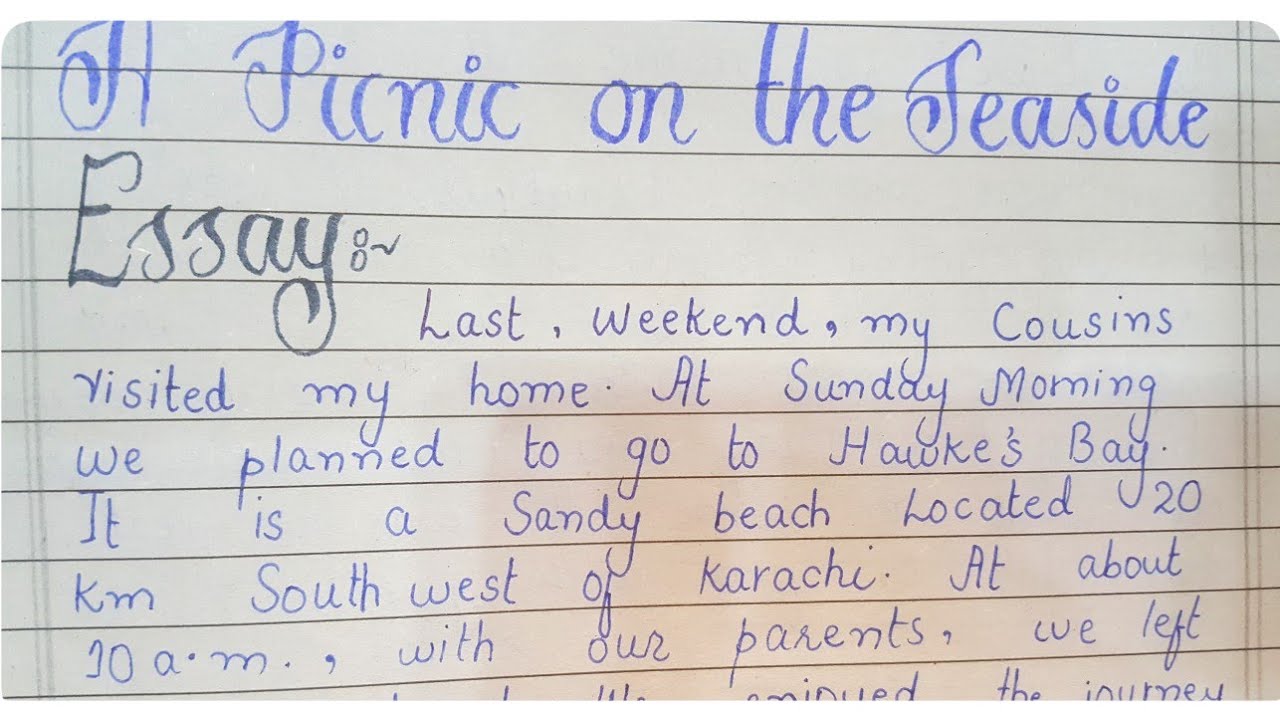 A Picnic on the Seaside
Essay:~
Last, weekend, my Cousins
visited my home. At Sunday Morning
we planned to go to Hawke's Bay.
It is a Sandy beach Located 20
Km South west of Karachi. At about
10 a.m., with our parents, we left
the journey